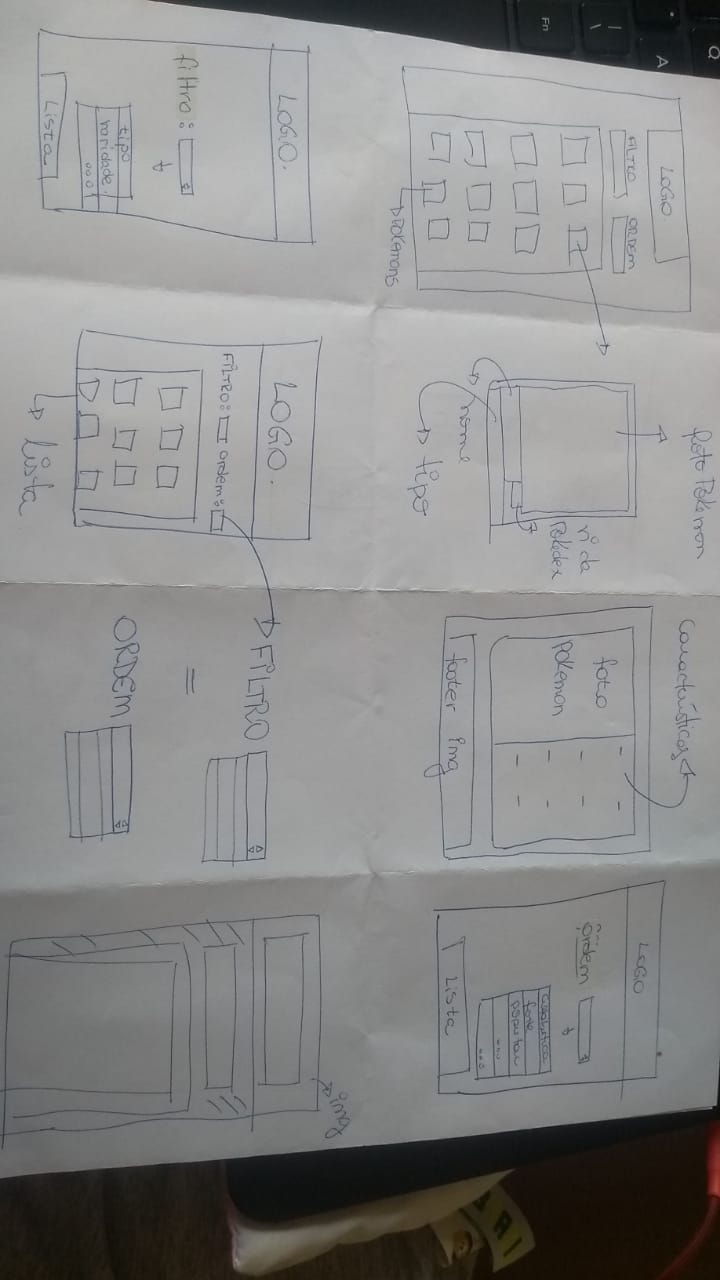 LOGO
FILTRO ORDEM
POKEMONS
foto Pokemon
nº da
Pokédex
nome
tipo
Características
foto
pokemon
footer img
LOGO
ordem
alfabética
forte
popular
...
...
Lista
LOGO.
filtro:
tipo
raridade.
...
Lista
LOGO.
FILTRO: ordem:
lista
FILTRO
=
ORDEM
img
Q
A
|
\
Fn